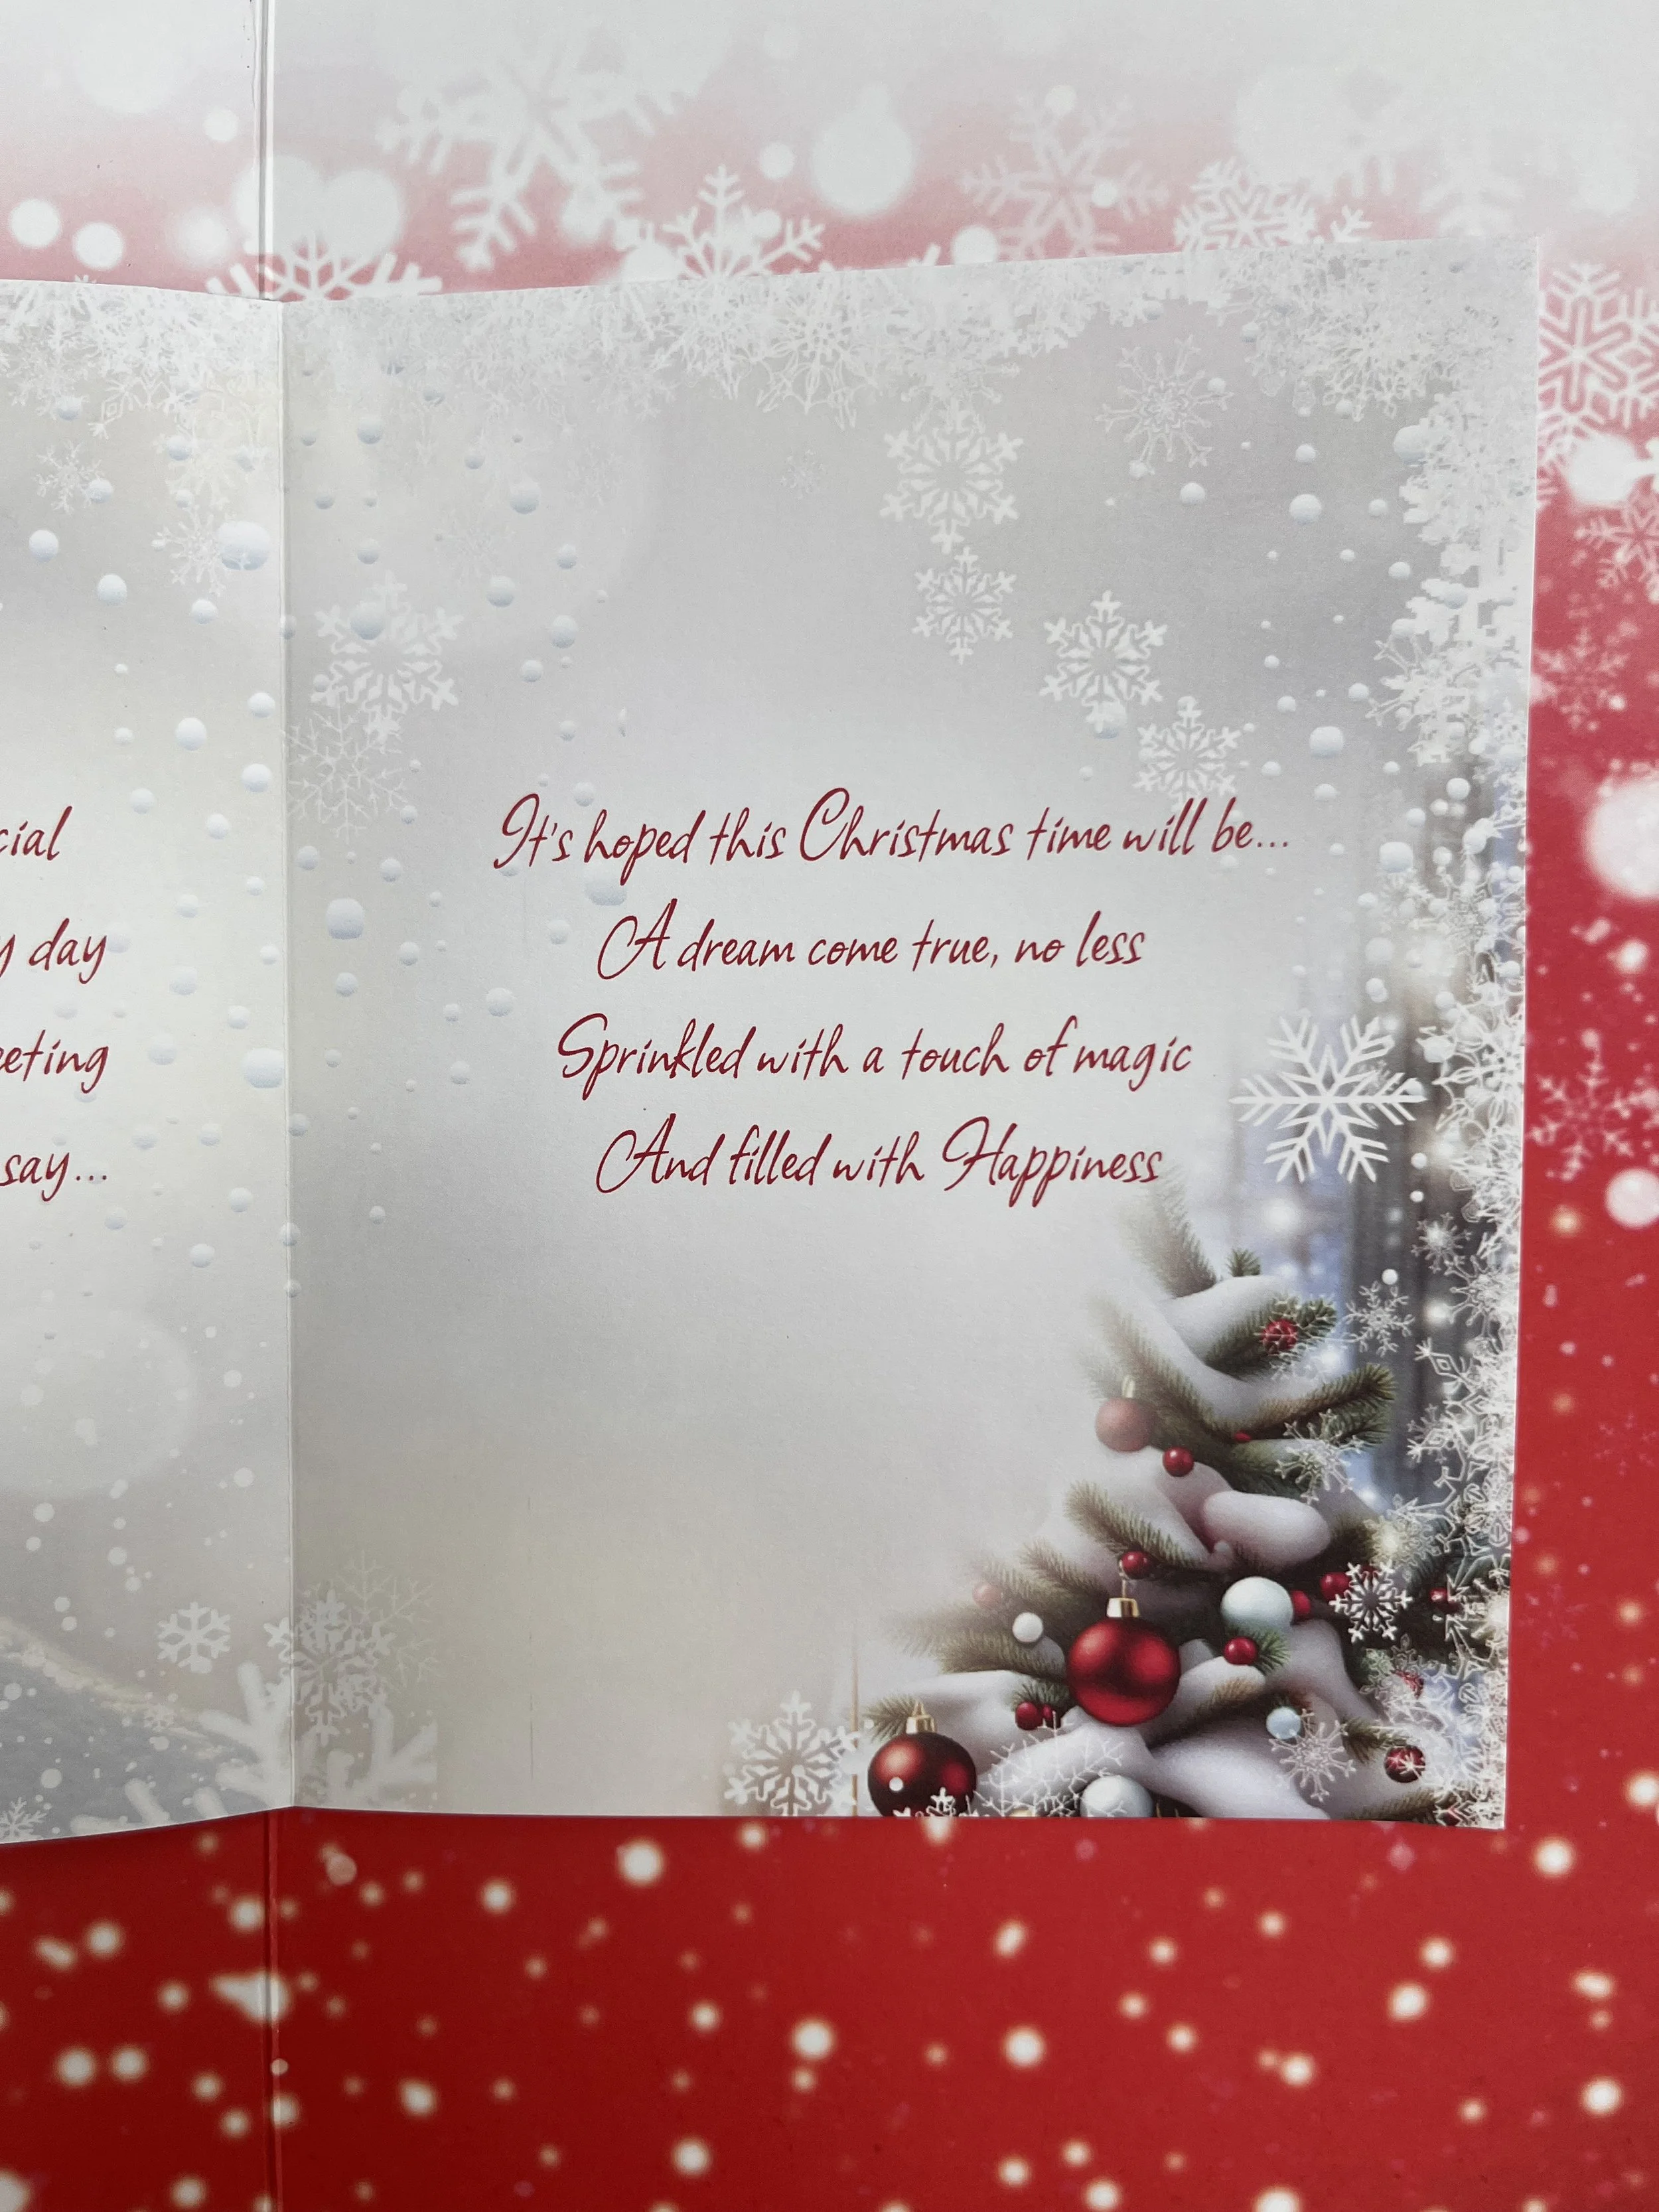 day
say...
It's hoped this Christmas time will be...
A dream come true, no less
Sprinkled with a touch of magic
And filled with Happiness